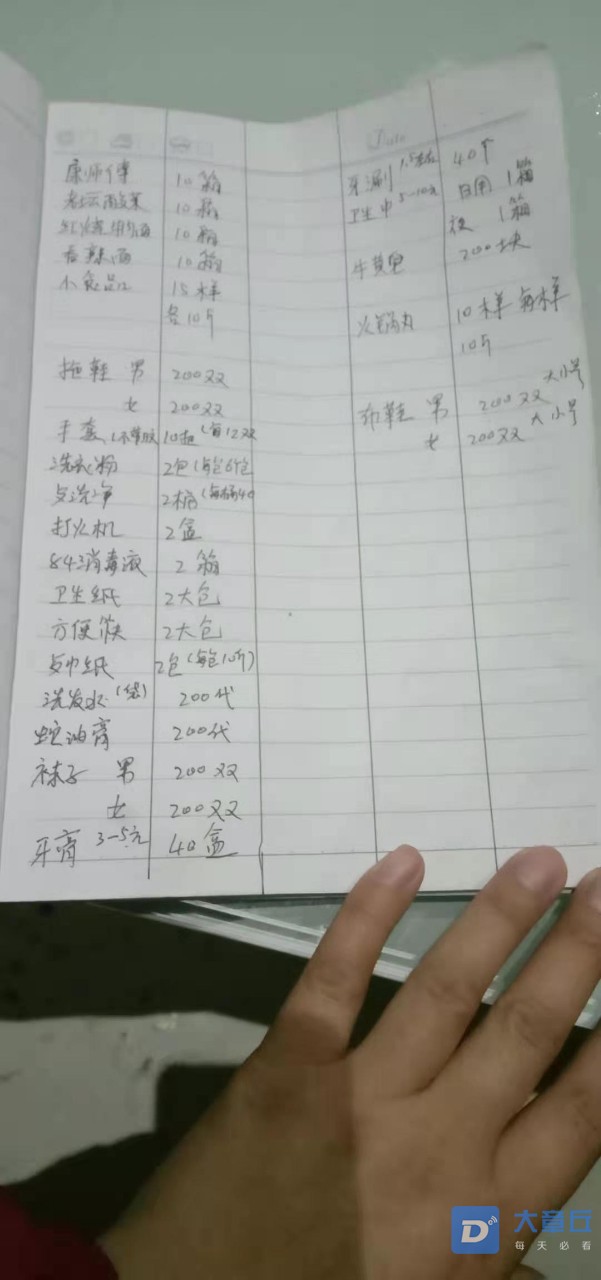 康师傅 10箱
老坛酸菜 10箱
红烧牛肉面 10箱
香辣面 10箱
小食品 15样
各10斤
拖鞋 男 200双
女 200双
手套 10把(每12双
洗衣粉 2包(每包6包
2桶(每桶40
打火机 2盒
843消毒液 2箱
卫生纸 2大包
方便筷 2大包
2包(每包10斤)
洗发水(袋) 200代
蛇油膏 200代
袜子 男 200双
女 200双
牙膏 3-5元 40盒
牙刷 1.5 40个
卫生巾 5-10元 日用 1箱
夜 1箱
200块
火锅丸 10样 每样
10斤
布鞋 男 200双 大小号
女 200双 大小号
大音丘
每天必看